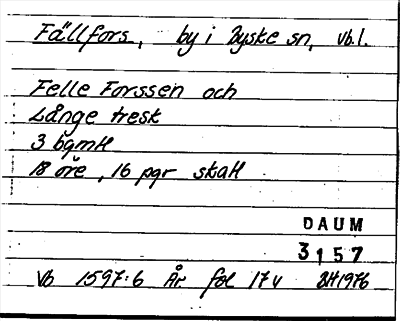 Fällfors, by i Byske sn, Vb.l.
Felle Forssen och
Långe tresk
3 bgmtl
18 öre, 16 pgr skatt
DAUM
3157
Vb 1597:6 År fol 17v BH1976